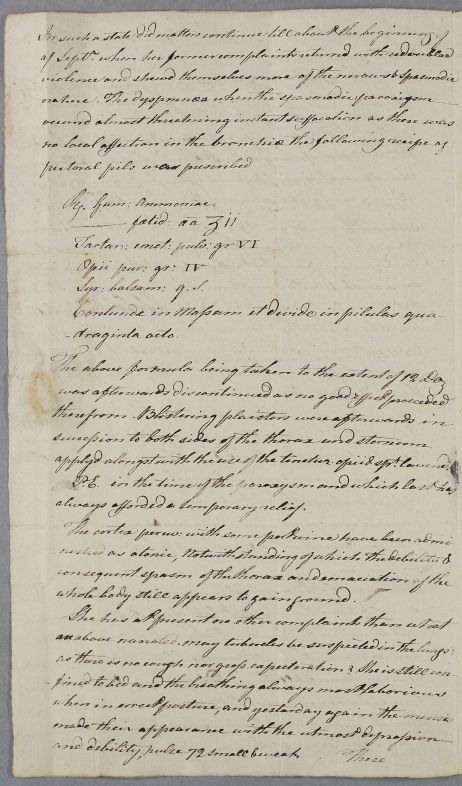 In such a state did matters continue till about the beginning of
of Septr. when her former complaints returned with redoubled
violence and shewed themselves more of the nervous & spasmodic
nature. The dyspnnœa when the spasmodic paroxysm
occurrd almost threatening instant suffocation as there was
no local affection in the bronchiæ the following recipe of
pectoral pils was prescribed
Rx. Gum: Ammoniac.
——— fœtid: aa ʒii
Tartar: emet: pulv: gr VI
Opii pur: gr: IV
Syr: balsam: q. S.
Contunde in Massam et divide in pilulas qua-
-draginta octo.
The above formula being taken to the extent of 12 Dog
was afterwards discontinued as no good effect proceeded
therefrom. Blistering plaisters were afterwards in
sucession to both sides of the thorax and sternum
applyd alongst with the use of the tinctur. opii & spt. lavend:
P.E. in the time of the paroxysm and which last has
always afforded a temporary relief.
The cortex peruv: with some port wine have been admi
nistred as a tonic, Notwithstanding of which the debility &
consequent spasm of the thorax and emaciation of the
whole body still appears to gain ground.
She has at present no other complaints than what
are above narrated. may tubercles be suspected in the lungs
as there is no cough nor gross expectoration? She is still con
-fined to bed and the breathing always most laborious
when in erect posture, and yesterday again the menses
made their appearance with the utmost depression
and debility, pulse 72 small & weak
There